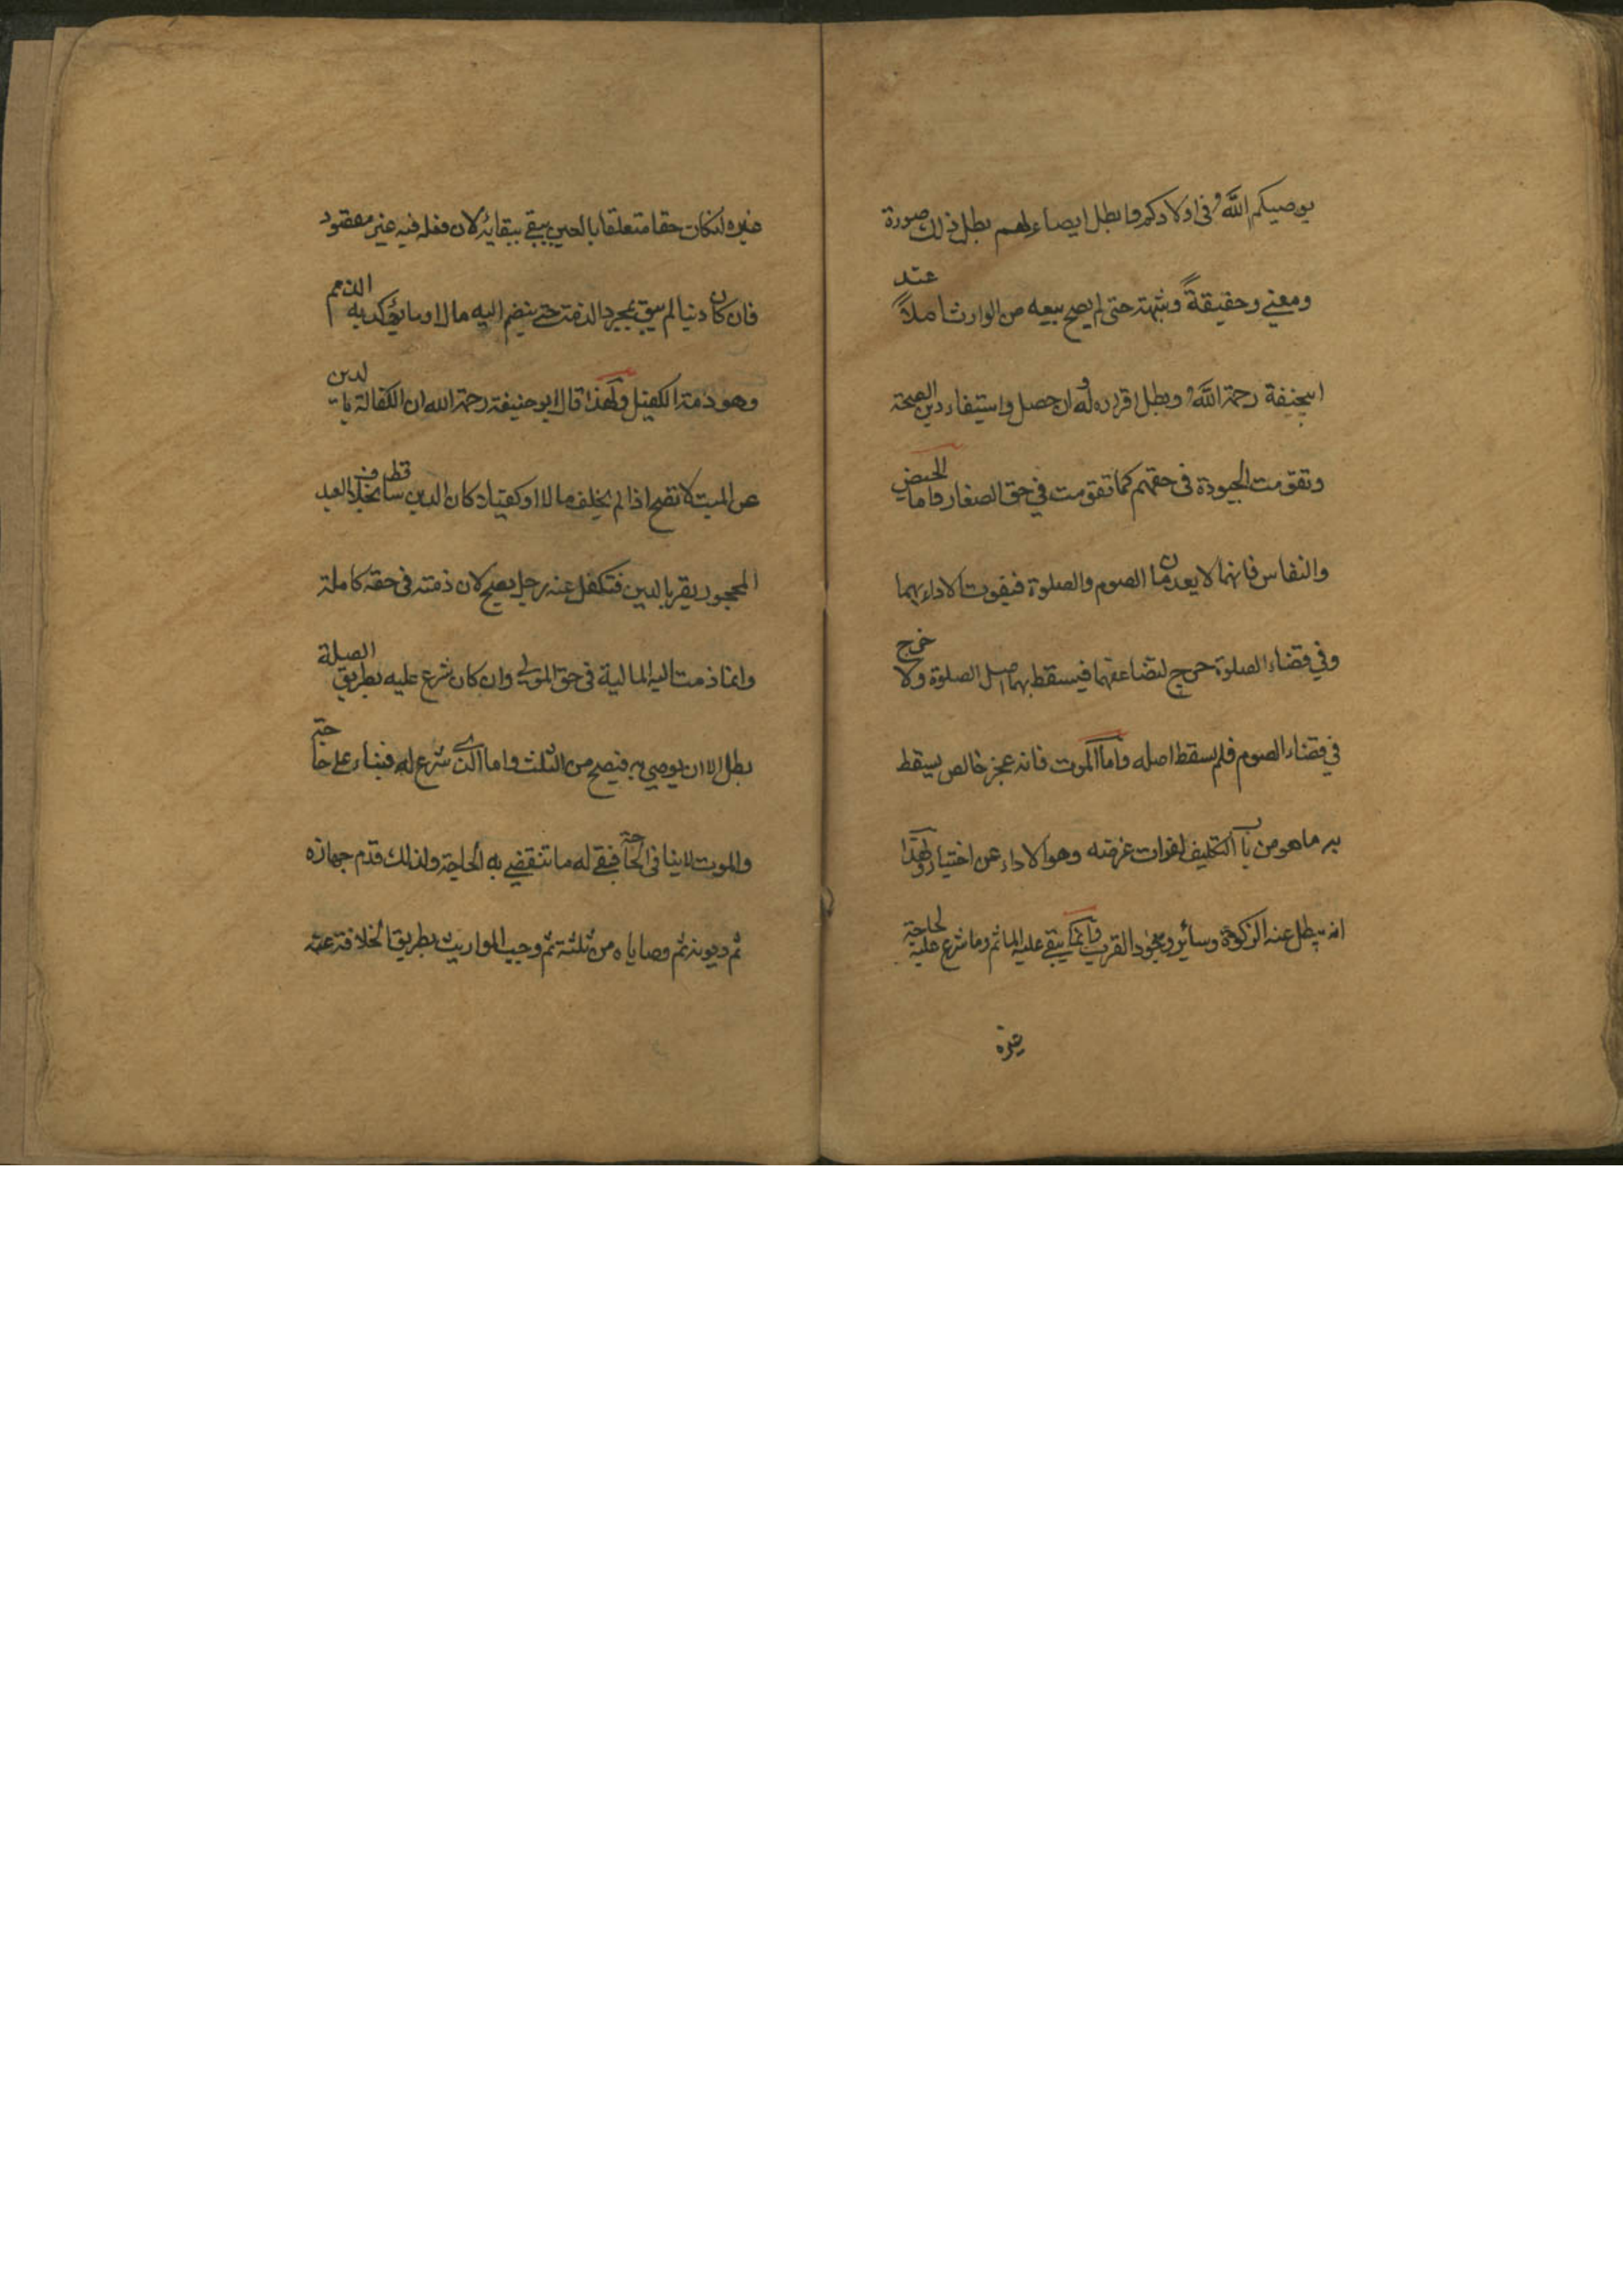 يوصيكم الله في اولادكم وابطل ايصاء لهم بطل ذلك صورة
ومعني وحقيقةً وشبهة حتى لم يصح بيعه من الوارث اصلاً عند
ابيحنيفة رحمة الله وبطل اقراره له وان حصل واستيفاء دين الصحة
وتقومت الجودة في حقهم كما تقومت في حق الصغار واما الحيض
والنفاس فانهما لا يعدمان الصوم والصلوة فيفوت الاداء بهما
وفي قضاء الصلوة حرج لتضاعفهما فيسقط بهما اصل الصلوة ولا حرج
في قضاء الصوم فلم يسقط اصله واما الموت فانه عجز خالص يسقط
به ماهو من باب التكليف لفوات غرضه وهو الاداء عن اختيار ولهذا
انه يبطل عنه الزكوة وسائر وجوه القرب وانما يبقي عليه الماثم وما شرع عليه لحاجة
غيره
غيره ان كان حقا متعلقا بالعين يبقي ببقائه لان فعله فيه غير مقصود
فان كان دينا لم يبق بمجرد الذمة حتي ينضم اليه مال او ما يؤكد به الذمم
وهو ذمة الكفيل ولهذا قال ابو حنيفة رحمة الله ان الكفالة بالدين
عن الميت لا تصح اذا لم يخلف مالا او كفيلا كان الدين ساقط بخلاف العبد
المحجور يقر بالدين فتكفل عنه رجل يصح لان ذمته في حقه كاملة
وانما ضمت اليه المالية في حق المولي وان كان شرع عليه بطريق الصلة
بطل الا ان يوصي به فيصح من الثلث واما الذي شرع له فبناء علي حاجته
والموت لا ينافي الحاجة فبقي له ما تنقضي به الحاجة ولذلك قدم جهازه
ثم ديونه ثم وصاياه من ثلثه ثم وجبت المواريث بطريق الخلافة عنه